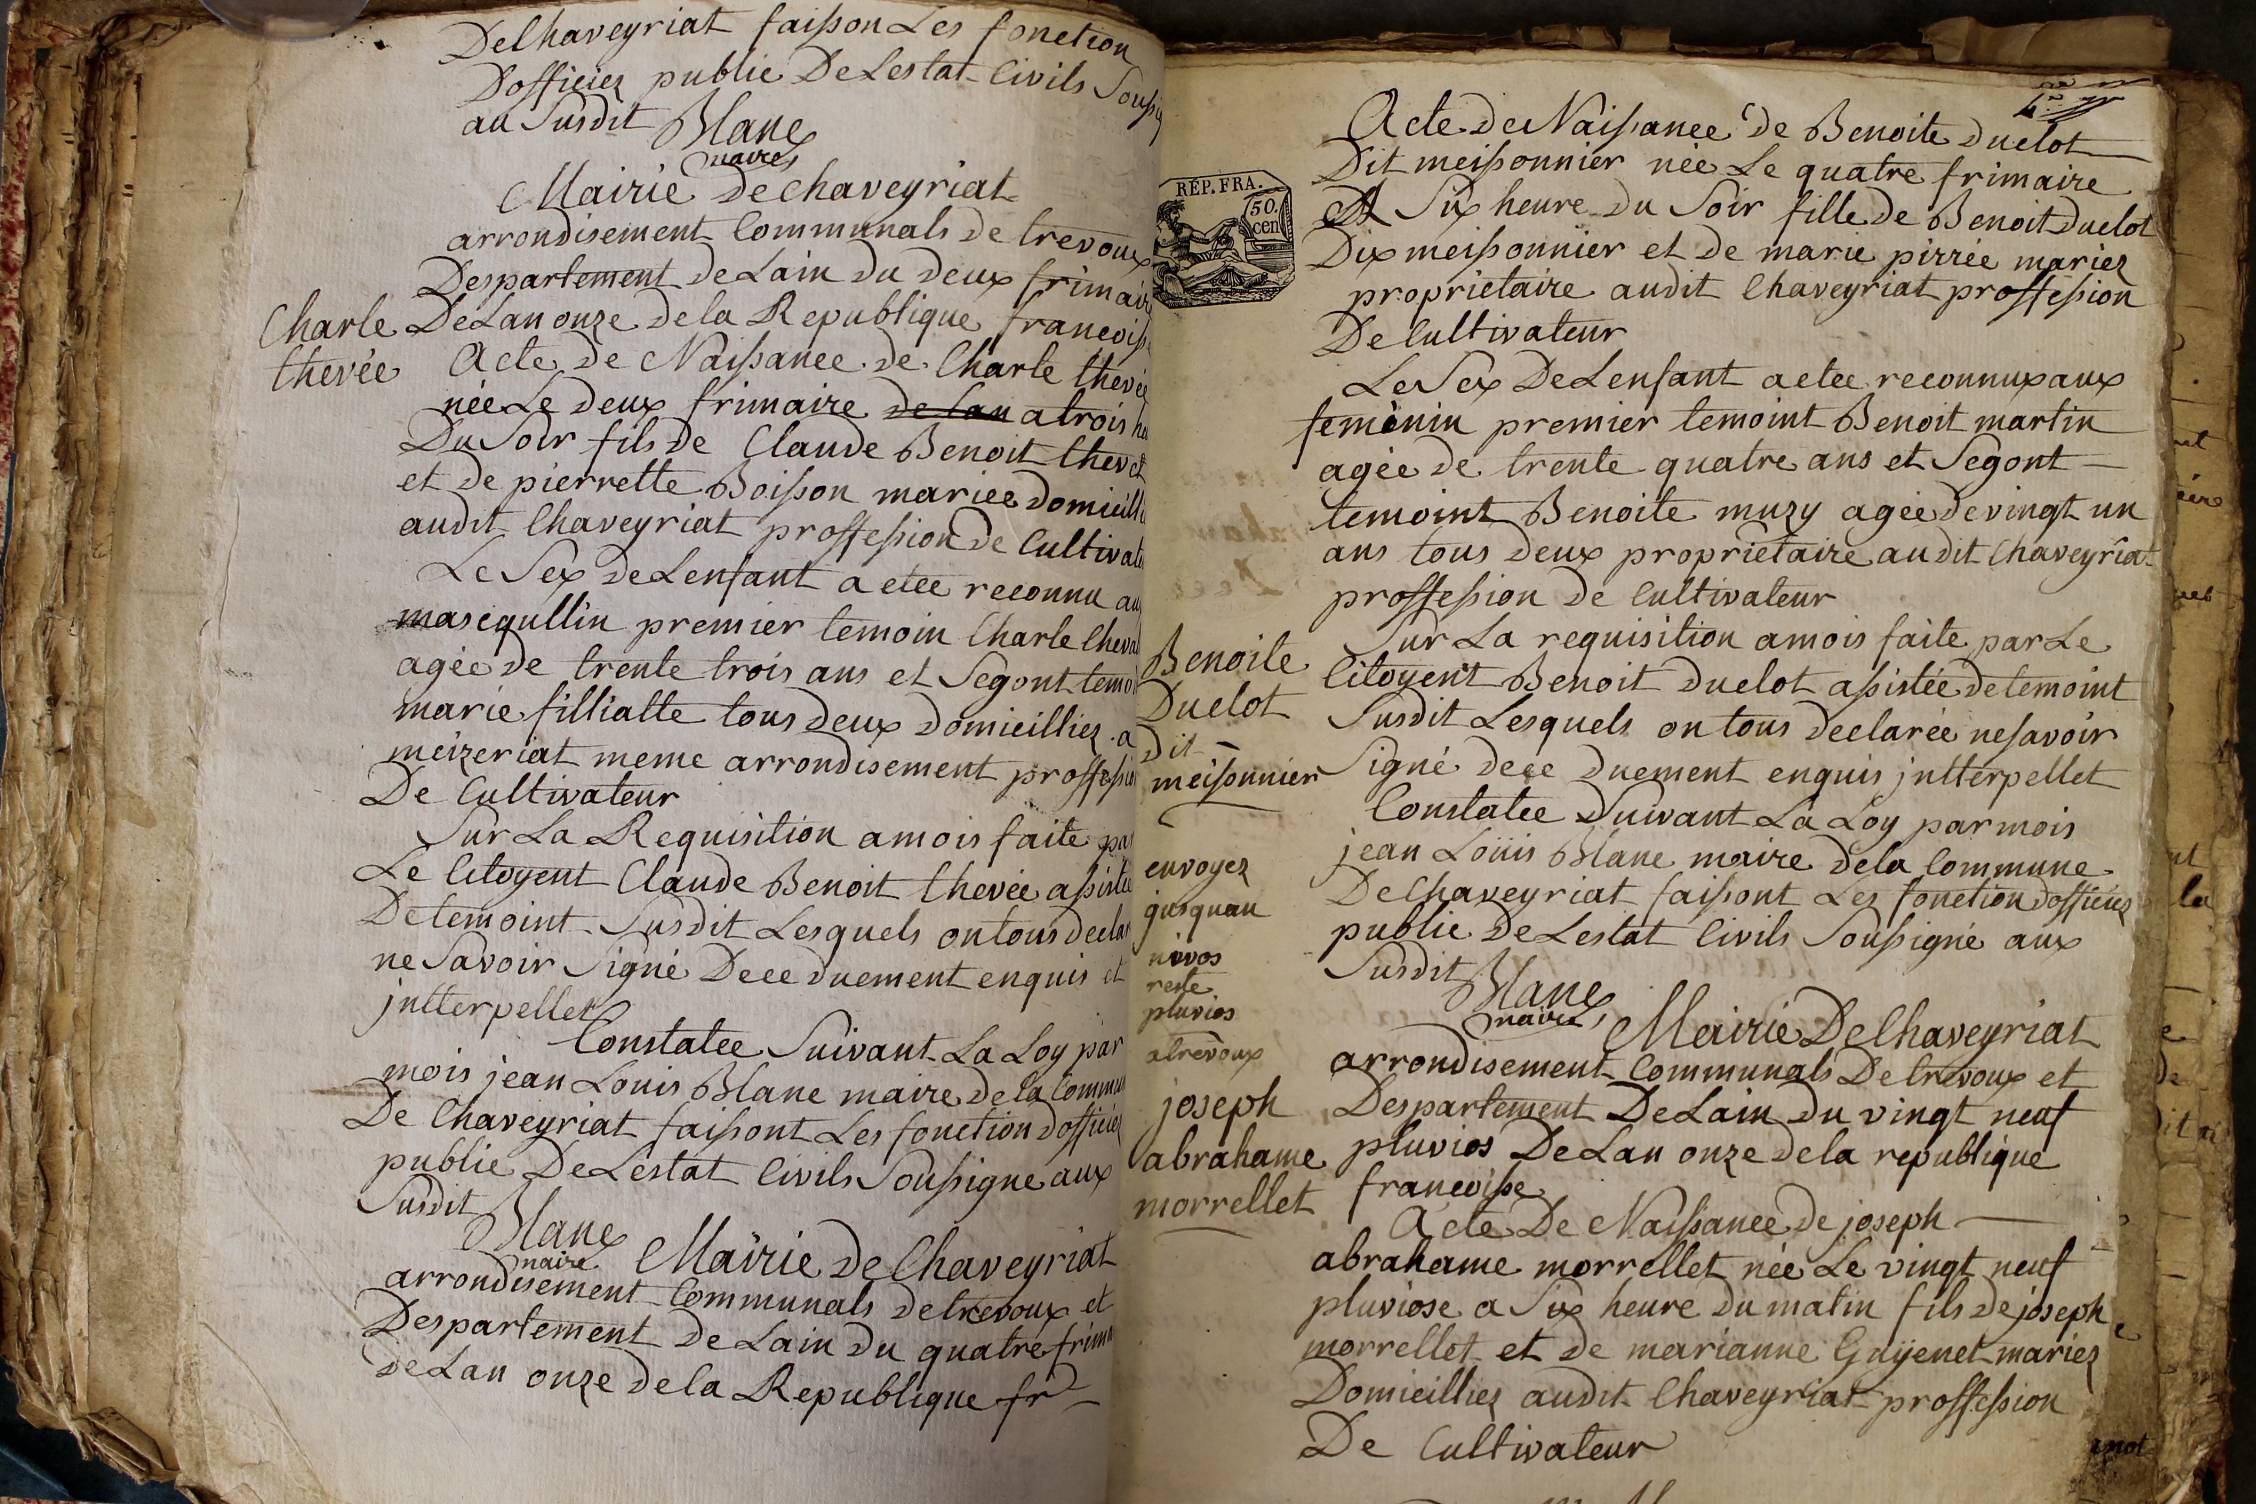 Delhaveyriat faisson Les fonction
Dofficier public De Lestat Civils Sousig
au Susdit Blanc
maire
Mairie de Chaveyriat
arrondisement Communals de trevoux
Despartement de Lain du deux frimair
De Lan onze de la Republique francois
Charle
thevée
Acte de Naissance de Charle thevée
née Le deux frimaire de Lan a trois he
Du Soir fils de Claude Benoit thevé
et de pierrette Boisson mariee domicilli
audit Chaveyriat proffession de Cultivate
Le Sex de Lenfant a etee reconnu au
mascqullin premier temoin Charle Cheval
agée de trente trois ans et Segont temoi
marie fillialte tous deux domicilliez a
meizeriat meme arrondisement proffession
De Cultivateur
Sur La Requisition a mois faite par
Le Citoyent Claude Benoit thevée assistée
De temoint Susdit Lesquels on tous declar
ne Savoir Signé De ce duement enquis et
jntterpellet
Constatee Suivant La Loy par
mois jean Louis Blanc maire de la Commun
De Chaveyriat faissont Les fonction dofficiez
public De Lestat Civils Soussigne aux
Susdit
Blanc
maire
Mairie de Chaveyriat
arrondisement Communals de trevoux et
Despartement de Lain du quatre frima
de Lan onze de la Republique fr
4
RÉP. FRA.
50.
cen
Acte de Naissance de Benoite duclot
Dit meissonnier née Le quatre frimaire
A Six heure du Soir fille de Benoit duclot
Dix meissonnier et de marie pirrée mariez
proprietaire audit Chaveyriat proffession
De Cultivateur
Le Sex De Lenfant a etee reconnux aux
femenin premier temoint Benoit martin
agée de trente quatre ans et Segont
temoint Benoite muzy agée de vingt un
ans tous deux proprietaire audit Chaveyriat
proffession de Cultivateur
Benoite
Duclot
dit
meissonnier
Sur La requisition a mois faite par Le
Citoyent Benoit duclot assistée de temoint
Susdit Lesquels on tous declarée ne savoir
Signé de ce duement enquis jntterpellet
Constatee Suivant La Loy par mois
jean Loüis Blanc maire de la Commune
De Chaveyriat faissont Les fonction dofficiez
public de Lestat Civils Soussigné aux
Susdit
Blanc
maire
envoyez
jusquau
nivos
reste
pluvios
a trevoux
Mairie De Chaveyriat
arrondisement Communals De trevoux et
Despartement De Lain du vingt neuf
pluvios De Lan onze de la republique
francoisse
joseph
abrahame
morrellet
Acte De Naissance de joseph
abrahame morrellet née Le vingt neuf
pluviose a Six heure du matin fils de joseph
morrellet et de marianne Guyenet mariez
Domicilliez audit Chaveyriat proffession
De Cultivateur